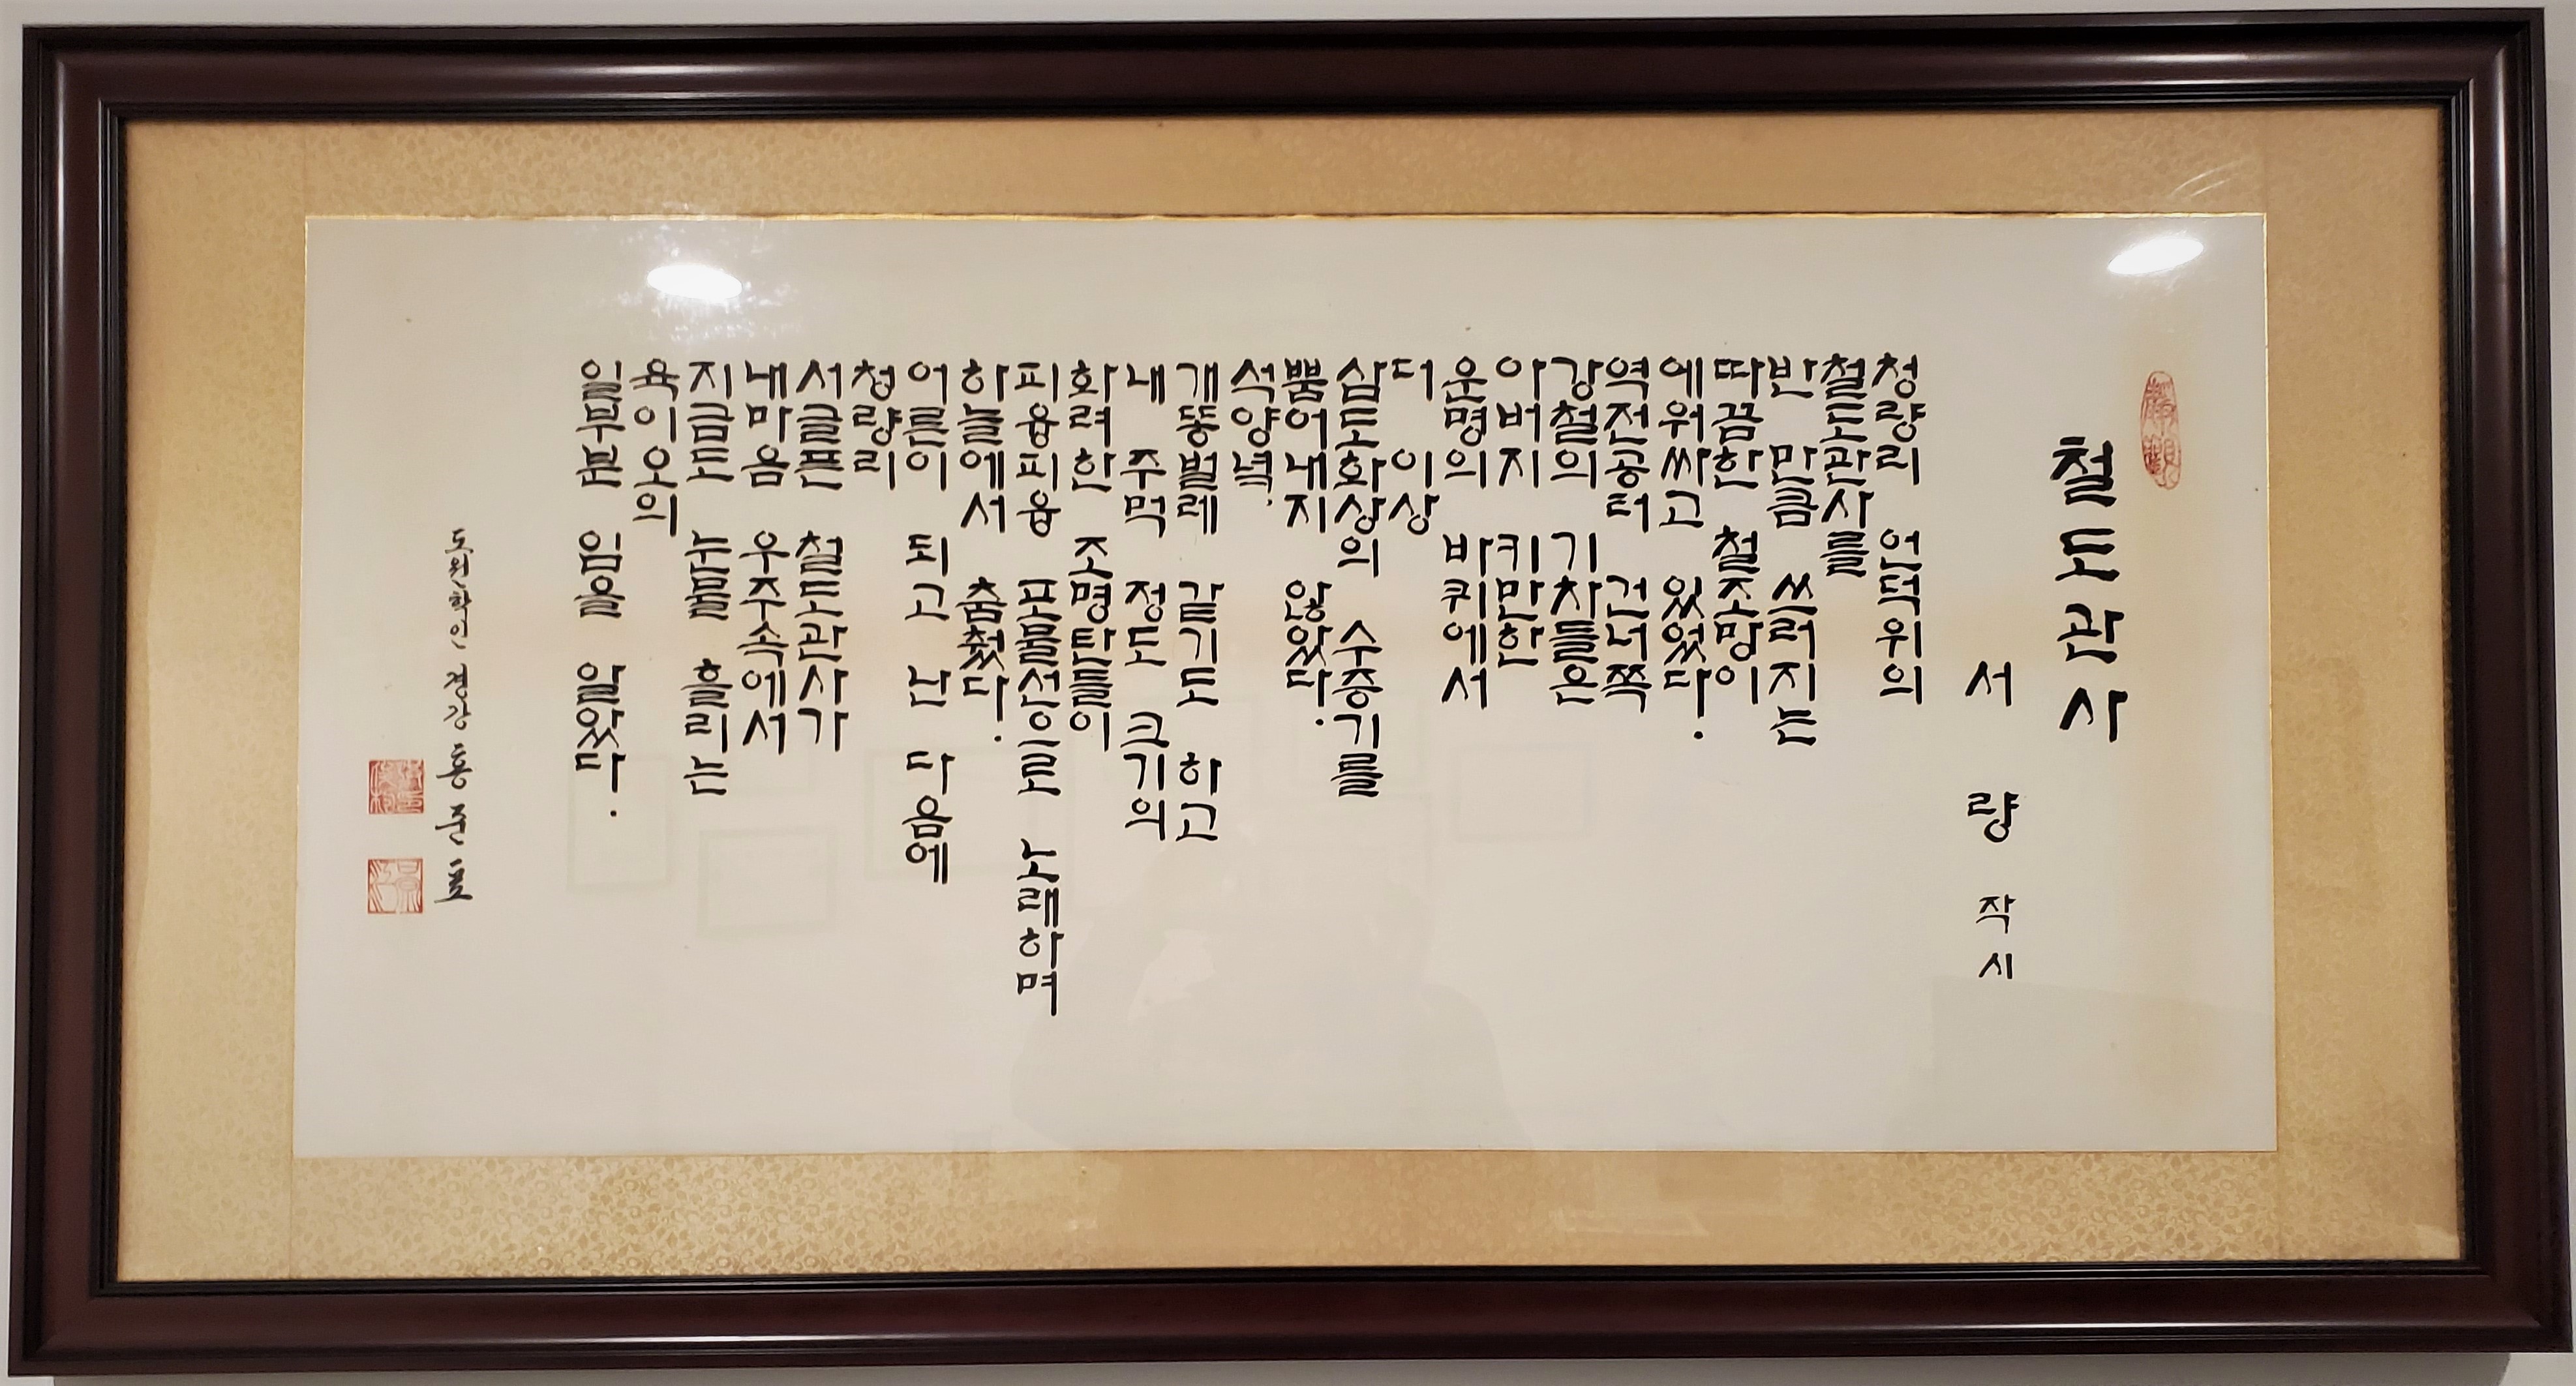 철도관사
서량 작시
청량리 언덕위의
철도관사를
반 만큼 쓰러지는
따끔한 철조망이
에워싸고 있었다.
역전공터 건너쪽
강철의 기차들은
아버지 키만한
운명의 바퀴에서
더 이상
삼도화상의 수증기를
뿜어내지 않았다.
석양녘.
개똥벌레 같기도 하고
내 주먹 정도 크기의
화려한 조명탄들이
피융피융 포물선으로 노래하며
하늘에서 춤췄다.
어른이 되고 난 다음에
청량리
서글픈 철도관사가
내마음 우주속에서
지금도 눈물 흘리는
육이오의
일부분 임을 알았다.
도원학인 경강 홍준표